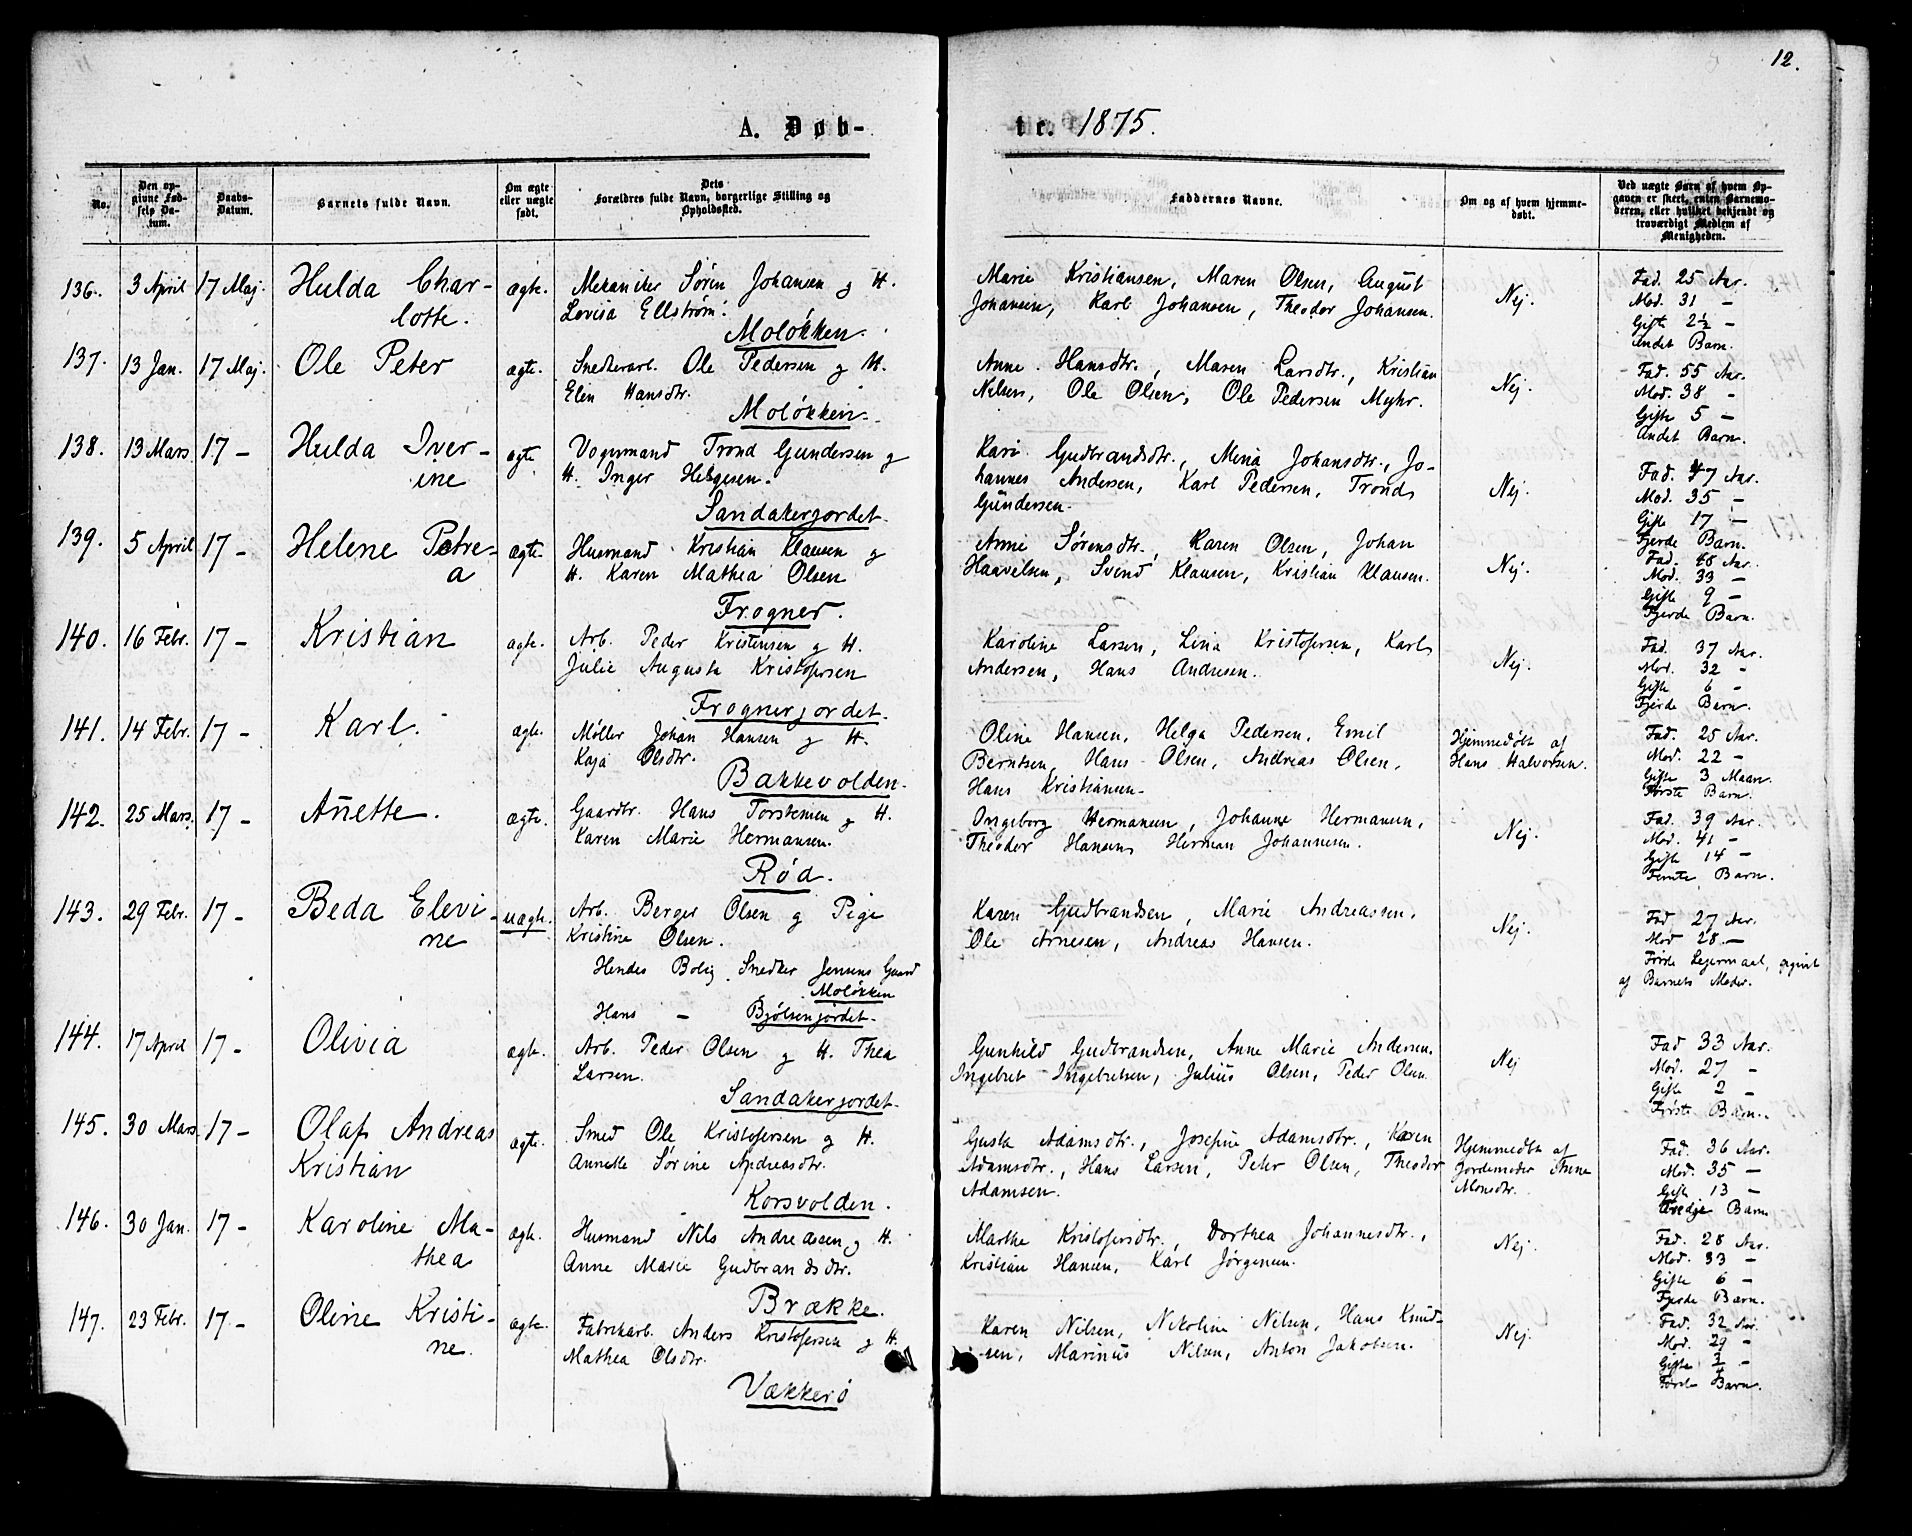 12.
A. Døb-
te. 1875.
No.
Den op-
givne Fød-
sels Da-
tum.
Daabs-
Datum.
Barnets fulde Navn.
Om ægte
eller uægte
født.
Dets
Forældres fulde Navn, borgerlige Stilling og
Opholdssted.
Faddernes Navne.
Om og af hvem hjemme-
døbt.
Ved uægte Barn af hvem Op-
gaven er skeet, enten Barnemo-
deren, eller hvilket bekjendt og
troværdigt Medlem af
Menigheden.
136. 3 April 17 Maj. Hulda Char-
lotte.
ægte.
Mekaniker Søren Johansen og H.
Lovisa Ellstrøm.
Moløkken.
Marie Kristiansen, Maren Olsen, August
Johansen, Karl Johansen, Theodor Johansen.
Nej.
Fad. 25 Aar.
Mod. 31 –
Gifte 2½ –
Andet Barn.
137. 13 Jan. 17 Maj. Ole Peter
ægte.
Snedkerarb. Ole Pedersen og H.
Elen Hansdtr.
Moløkken.
Anne Hansdtr., Maren Larsdtr., Kristian
Nelsen, Ole Olsen, Ole Pedersen Myhr.
Nej.
Fad. 55 Aar.
Mod. 38 –
Gifte 5 –
Andet Barn.
138. 13 Mars 17 – Hulda Iver-
ine
ægte
Vognmand Trond Gundersen og
H. Inger Helgesen.
Sandakerjordet.
Kari Gudbrandsdtr., Mina Johansdtr., Jo-
hannes Andersen, Karl Pedersen, Trond
Gundersen.
Nej.
Fad. 47 Aar.
Mod. 35 –
Gifte 17 –
Fjerde Barn.
139. 5 April 17 – Helene Petre-
a
ægte
Husmand Kristian Klausen og
H. Karen Mathea Olsen
Frogner.
Anne Sørensdtr., Karen Olsen, Johan
Haavelsen, Svend Klausen, Kristian Klausen.
Nej.
Fad. 48 Aar.
Mod. 33 –
Gifte 9 –
Fjerde Barn.
140. 16 Febr. 17 – Kristian
ægte.
Arb. Peder Kristensen og H.
Julie Augusta Kristofersen
Frognerjordet.
Karoline Larsen, Lina Kristofersen, Karl
Andersen, Hans Andresen.
Nej.
Fad. 37 Aar.
Mod. 32 –
Gifte 6 –
Fjerde Barn.
141. 14 Febr. 17 – Karl.
ægte.
Møller Johan Hansen og H.
Kaja Olsdtr.
Bakkevolden.
Oline Hansen, Helga Pedersen, Emil
Berntsen, Hans Olsen, Andreas Olsen,
Hans Kristiansen.
Hjemmedøbt af
Hans Halvorsen.
Fad. 25 Aar.
Mod. 22 –
Gifte 3 Maan.
Første Barn.
142. 25 Mars. 17 – Anette.
ægte.
Gaardbr. Hans Torstensen og H.
Karen Marie Hermansen.
Rød.
Ingeborg Hermansen, Johanne Hermansen,
Theodor Hansen, Herman Johannesen.
Nej.
Fad. 39 Aar.
Mod. 41 –
Gifte 14 –
Femte Barn.
143. 29 Febr. 17 – Beda Elevi-
ne
uægte.
Arb. Berger Olsen og Pige
Kristine Olsen.
Hendes Bolig Snedker Jensens Gaard
Moløkken
Hans – Bjølsenjordet.
Karen Gudbrandsen, Marie Andreassen,
Ole Arnesen, Andreas Hansen.
Nej.
Fad 27 Aar.
Mod 28 –
Første Lejermaal, opgivet
af Barnets Moder.
144. 17 April 17 – Olivia
ægte.
Arb. Peder Olsen og H. Thea
Larsen.
Sandakerjordet.
Gunhild Gudbrandsen, Anne Marie Andersen,
Ingebret Ingebretsen, Julius Olsen, Peder Olsen
Nej
Fad 33 Aar.
Mod. 27 –
Gifte 2 –
Første Barn.
145. 30 Mars 17 – Olaf Andreas
Kristian
ægte.
Smed Ole Kristofersen og H.
Annette Sørine Andreasdtr.
Korsvolden.
Gusta Adamsdtr., Josefine Adamsdtr., Karen
Adamsdtr., Hans Larsen, Peter Olsen, Theodor
Adamsen.
Hjemmedøbt af
Jordemoder Anne
Monsdtr.
Fad. 36 Aar.
Mod. 35 –
Gifte 13 –
Tredje Barn
146. 30 Jan. 17 – Karoline Ma-
thea
ægte.
Husmand Nils Andreassen og H.
Anne Marie Gudbrandsdtr.
Brække.
Marthe Kristofersdtr., Dorthea Johannesdtr.,
Kristian Hansen, Karl Jørgensen.
Nej.
Fad. 28 Aar.
Mod. 33 –
Gifte 6 –
Fjerde Barn.
147. 23 Febr. 17 – Oline Kristi-
ne.
ægte.
Fabrikarb. Anders Kristofersen og H.
Mathea Olsdtr.
Vækkerø
Karen Nilsen, Nikoline Nilsen, Hans Knud-
sen, Marinus Nilsen, Anton Jakobsen.
Nej.
Fad. 32 Aar.
Mod. 29 –
Gifte ¾ –
Første Barn.